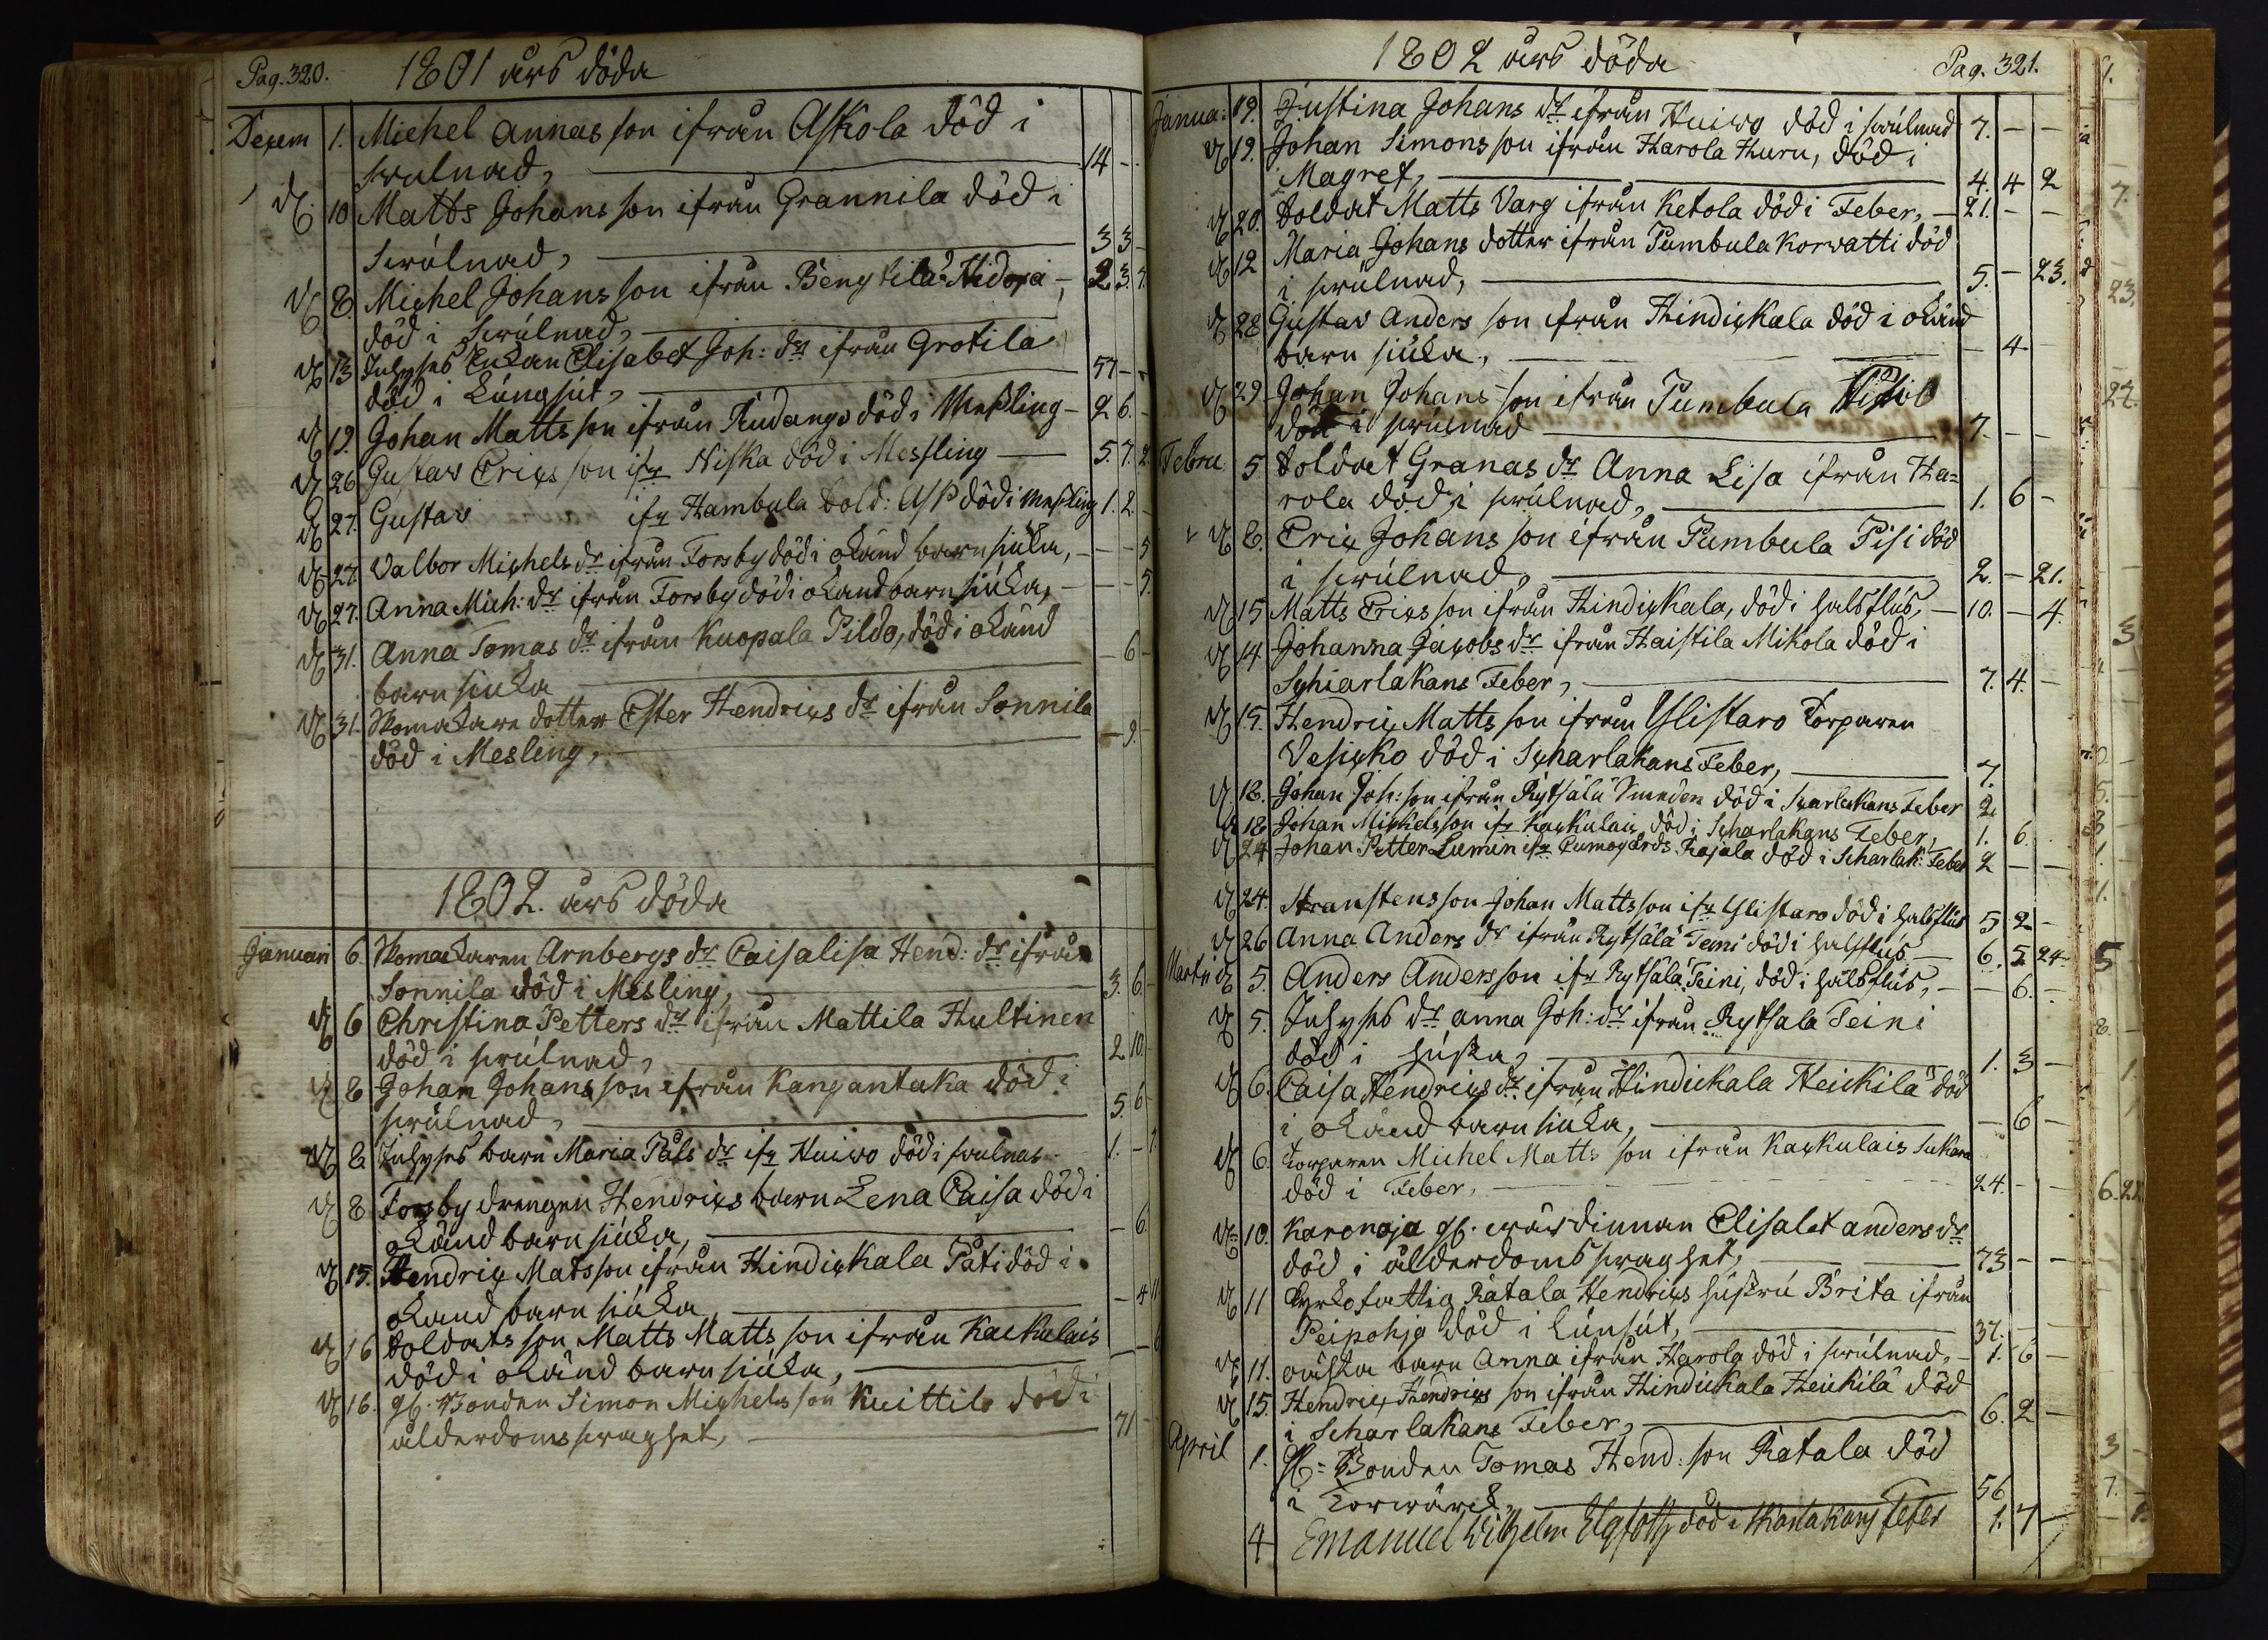 Pag. 320. 1801 års döda
Decem 1. Michel Annas son ifrån Askola död i
swulnad, 14 -
d 10 Matts Johans son ifrån Grannila död i
swulnad, 3 3 -
d 8. Michel Johans son ifrån Bengtilä 2 3. 7.
död i swulnad,
d 13 Inhyses Enkan Elisabet Joh: dr ifrån Grotila
död i Lungsut, 57 - -
d 19. Johan Matts son ifrån Rudangs död i Messling - 2 6. -
d 26 Gustav Erics son ifr Niska död i Messling 5. 7. 2.
d 27. Gustav ifr Hambula Sold: Asp död i Messling 1. 2. -
d 27. Valbor Michels dr ifrån Forsby död i okänd barnsiuka, - - 5
d 27. Anna Mich: dr ifrån Forsby död i okänd barnsiuka, - - 5.
d 31. Anna Tomas dr ifrån Kuopala Pildo, död i okänd
barnsiuka - 6 -
d 31. Skomakare dotter Ester Hendrics dr ifrån Sonnila
död i Mesling, - 9. -
1802. års döda
Januari 6. Skomakaren Arnbergs dr Caisalisa Hend: dr ifrån
Sonnila död i Mesling, 3. 6. -
d 6 Christina Petters dr ifrån Mattila Hultinen
död i swulnad, 2 10. -
d 8 Johan Johans son ifrån Kangantaka död i
swulnad, 5. 6 -
d 8. Inhyses barn Maria Påls dr ifr Huiwo död i swulnad 1. - 7
d 8 Forsby drengen Hendrics barn Lena Caisa död i
okänd barnsiuka, - 6.
d 15. Hendric Matsson ifrån Hindickala Päti död i
okänd barnsiuka, - 4 11
d 16 Soldats son Matts Matts son ifrån Kackulais
död i okänd barnsiuka, - - 6
d 16. gl. Bonden Simon Michelsson Kuittilo död i
ålderdoms swaghet, 71 -
1802 års döda Pag. 321.
Janua: 19. Justina Johans dr ifrån Huiwo död i swulnad 7. - -
d 19. Johan Simons son ifrån Harola Huru, död i
Magref, 4. 4 2
d 20. Soldat Matts Varg ifrån Ketola död i Feber, - 21. - -
d 12 Maria Johans dotter ifrån Pumbula Korwatti död
i swulnad, 5. - 23.
d 28 Gustav Anders son ifrån Hindickala död i okänd
barn siuka, - 4 -
d 29 Johan Johans son ifrån Pumbula
död i swulnad 7. - -
Febru 5 Soldat Granas dr Anna Lisa ifrån Ha=
rola död i swulnad, 1. 6 -
d 8. Eric Johans son ifrån Pumbula Pisi död
i swulnad, 2. - 21.
d 15 Matts Erics son ifrån Hindickala, död i halsflus, - 10. - 4.
d 14 Johanna Jacobs dr ifrån Haistila Mikola död i
Schiarlakans Feber, 7. 4. -
d 15. Hendric Matts son ifrån Ylistaro Torparen
Vesicko död i Scharlakans Feber, 7.
d 18. Johan Joh: son ifrån Rytsälä Smeden död i Scarlakans Feber 2
d 18 Johan Michelsson ifr Kackulais död i Scharlakans Feber, 1. 6.
d 24 Johan Petter Lumin ifr Cumogårds Rajala död i Scharlak: Feber 2 - -
d 24. Johan Mattsson ifr Ylistaro död i halsflus 5 2 -
d 26 Anna Anders dr ifrån Rytsälä Teini död i halsflus - 6. 5 24
Martii d 5. Anders Andersson ifr Rytsälä Teini, död i halsflus, - - 6. -
d 5. Inhyses dr Anna Joh: dr ifrån Rytsala Teini
död i husta, 1. 3 -
d 6. Caisa Hendrics dr ifrån Hindickala Heickila död
i okänd barnsiuka, - 6 -
d 6. Torparen Michel Matts son ifrån Kackulais Sukara
död i Feber, 24. - -
d 10. Karonoja gl. wärdinnan Elisabet anders dr
död i ålderdoms swaghet, 73 - -
d 11 Kyrkofattig Rätala Hendrics hustru Brita ifrån
Peipohja död i Lunsut, 37. - -
d 11. oäkta barn Anna ifrån Harola död i swulnad, - 1. 6 -
d 15. Hendric Hendrics son ifrån Hindickala Heickilä död
i Scharlakans Feber, 6. 2 -
April 1. gl: Bonden Tomas Hend: son Rätala död
i Torwärck, 56
4 Emanuel Wilhelm död i Skarlakans Feber 1. 7 -